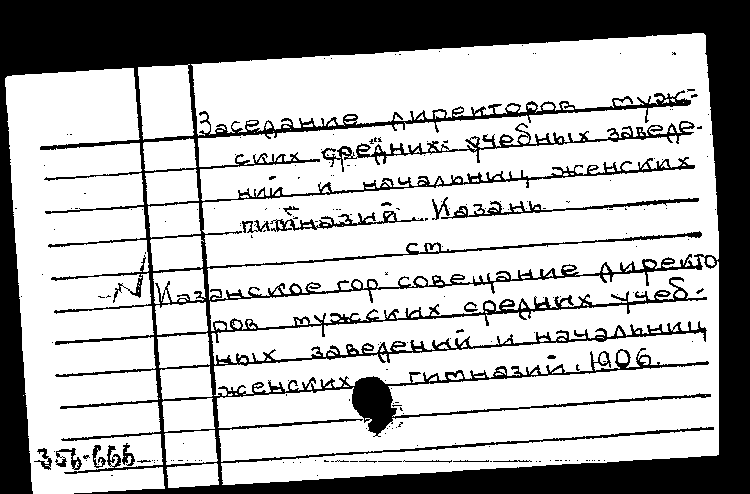 Заседание директоров муж-
ских средних учебных заведе-
ний и начальниц женских
гимназий. Казань
см.
Казанское гор. совещание директо-
ров мужских средних учеб-
ных заведений и начальниц
женских гимназий. 1906.
356-666